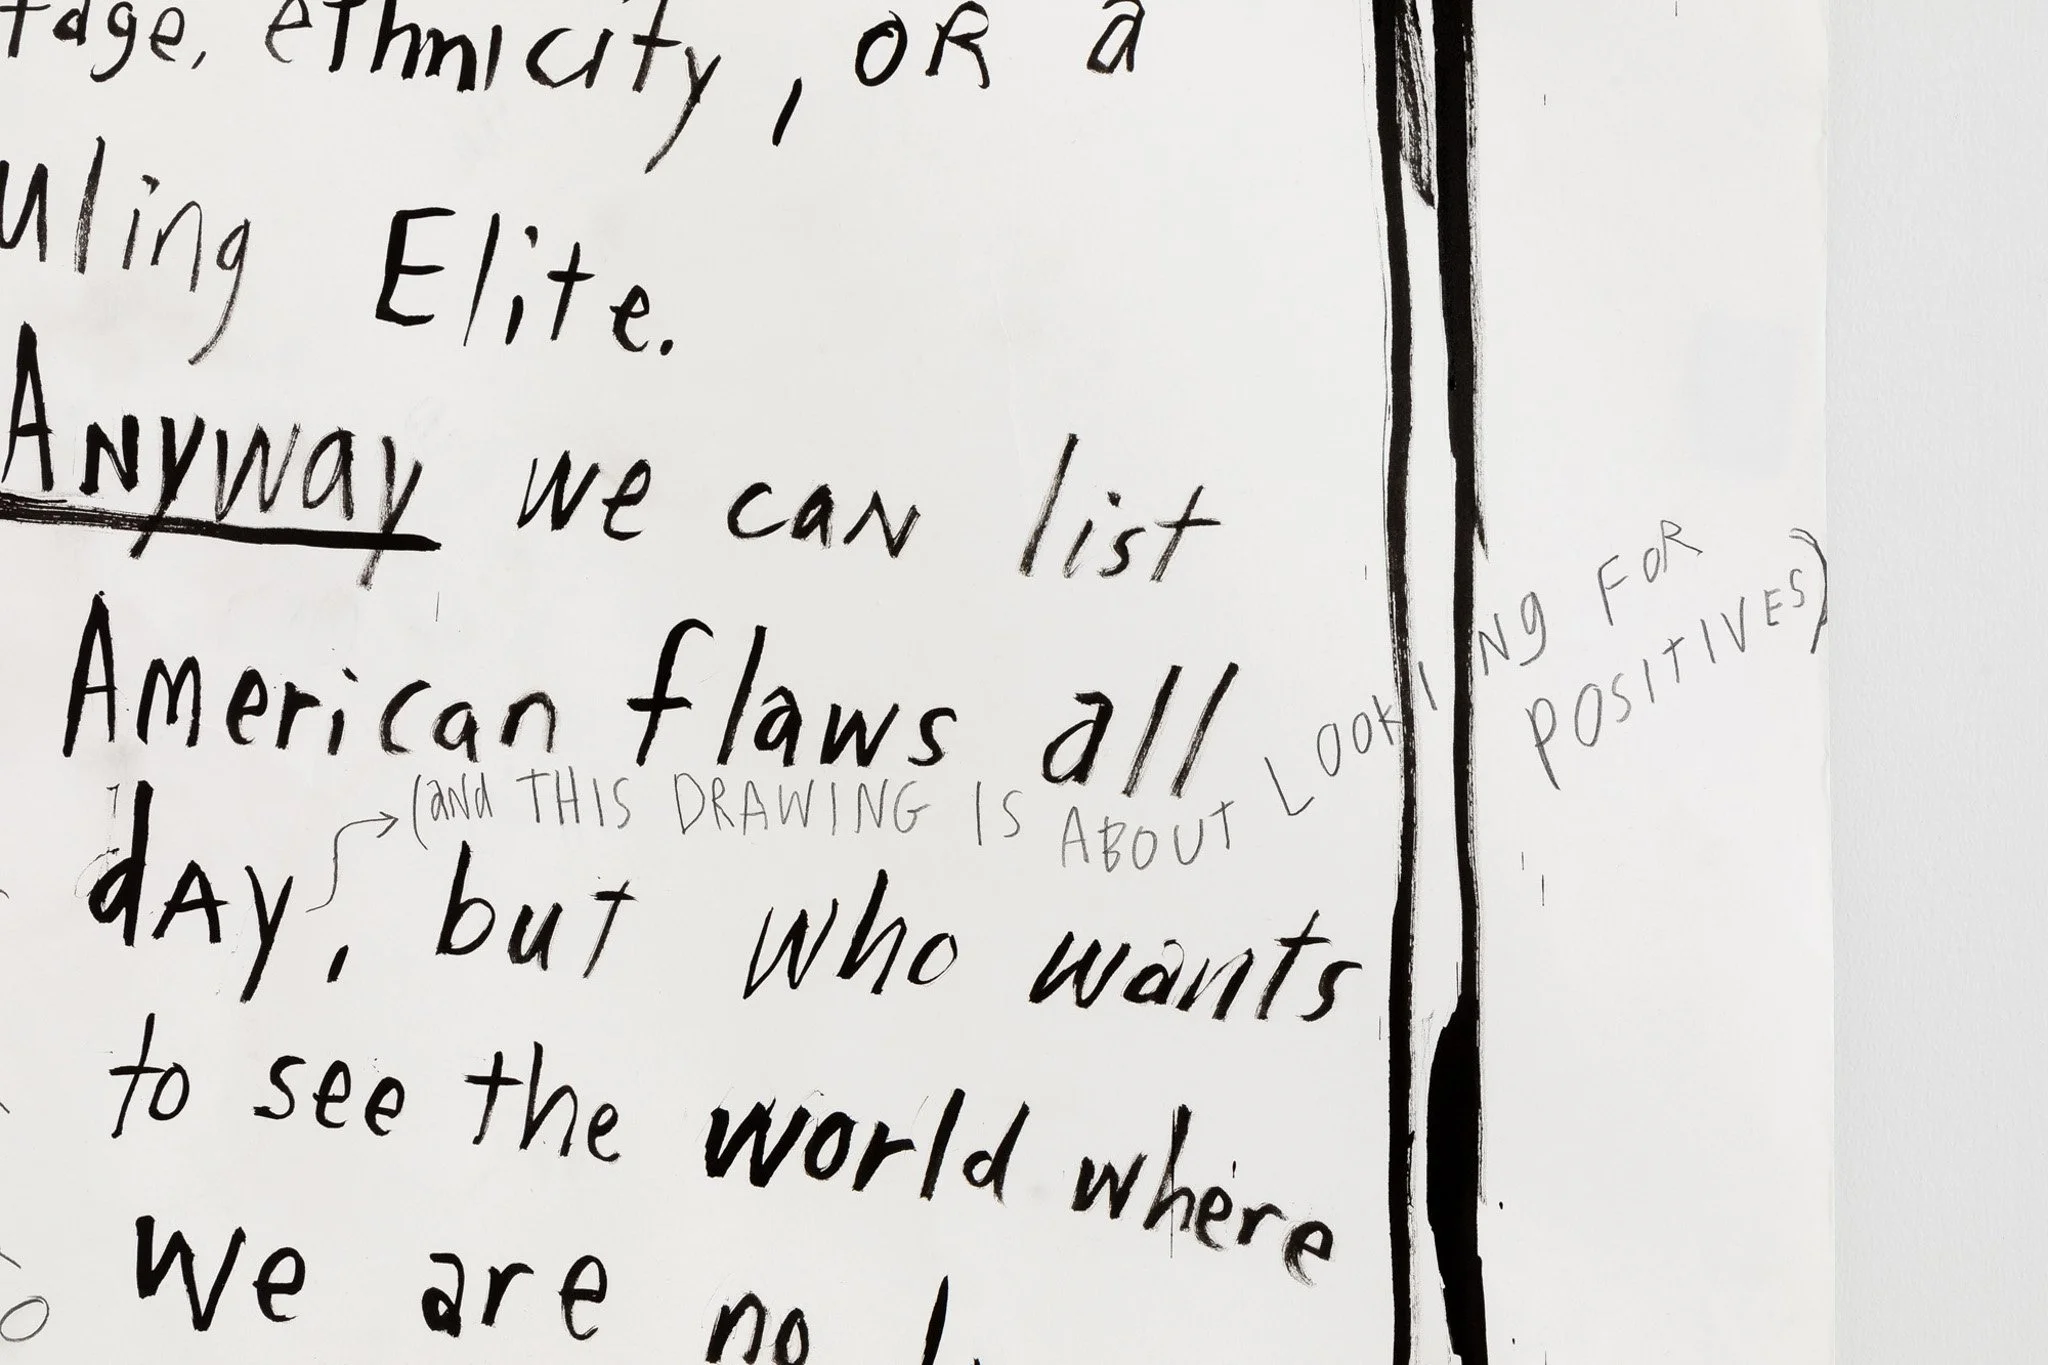 tage, ethnicity, OR a
uling Elite.
Anyway we can list
American flaws all
(and THIS DRAWING IS ABOUT LOOKING FOR
POSITIVES)
dAy, but who wants
to see the world where
we are no